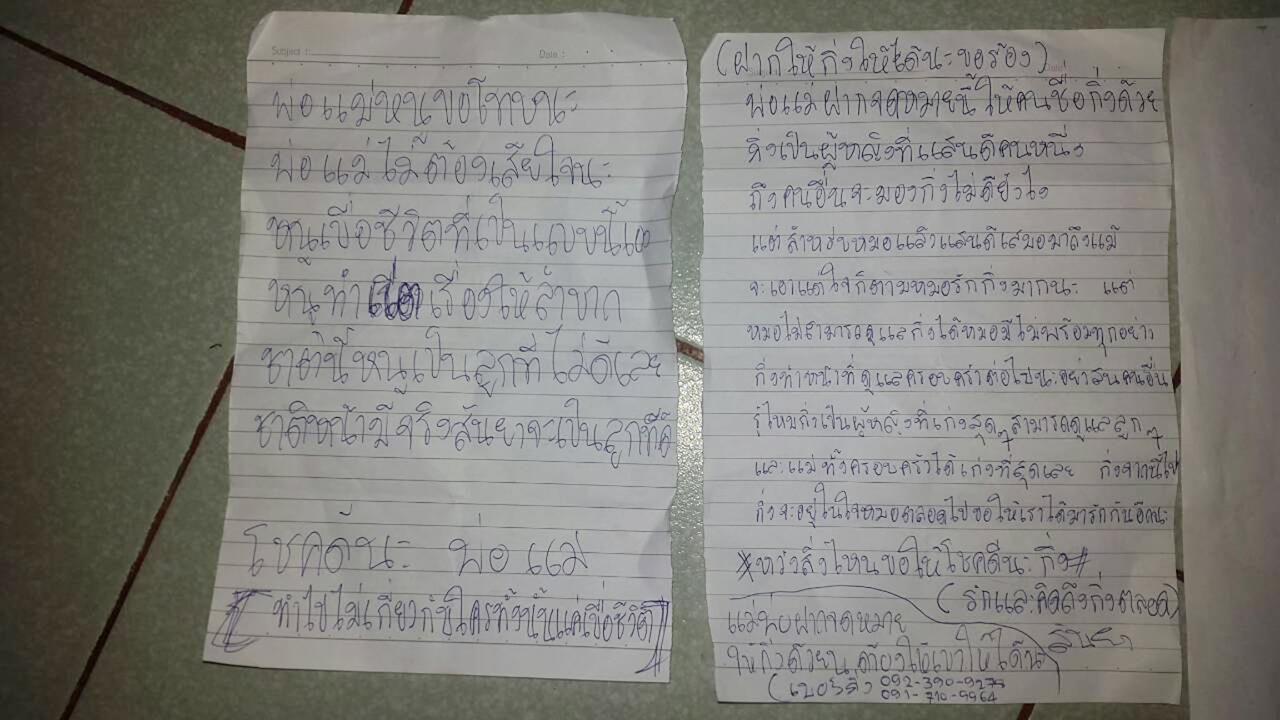 Subject :
Date :
พ่อแม่หนูขอโทษนะ
พ่อแม่ไม่ต้องเสียใจนะ
หนูเบื่อชีวิตที่เป็นแบบนี้
หนูทำ เรื่องให้ลำบาก
ชาตินี้หนูเป็นลูกที่ไม่ดีเลย
ชาติหน้ามีจริงสัญญาจะเป็นลูกที่ดี
โชคดีนะ พ่อ แม่
ทำไปไม่เกี่ยวกับใครทั้งนั้นแค่เบื่อชีวิต
(ฝากให้กิ่งให้ได้นะขอร้อง)
พ่อแม่ฝากจดหมายนี้ให้คนชื่อกิ่งด้วย
กิ่งเป็นผู้หญิงที่แสนดีคนหนึ่ง
ถึงคนอื่นจะมองกิ่งไม่ดียังไง
แต่สำหรับหมอแล้วแสนดีเสมอมาถึงแม้
จะเอาแต่ใจก็ตามหมอรักกิ่งมากนะ แต่
หมอไม่สามารถดูแลกิ่งได้หมอมีไม่พร้อมทุกอย่าง
กิ่งทำหน้าที่ดูแลครอบครัวต่อไปนะอย่าสนคนอื่น
รู้ไหมกิ่งเป็นผู้หญิงที่เก่งสุดๆสามารถดูแลลูกๆ
และแม่ทั้งครอบครัวได้เก่งที่สุดเลย กิ่งจากนี้ไป
กิ่งจะอยู่ในใจหมอตลอดไปขอให้เราได้มารักกันอีกนะ
*หวังสิ่งไหนขอให้โชคดีนะ กิ่ง#
(รักและคิดถึงกิ่งตลอด)
แม่พ่อฝากจดหมาย
ให้กิ่งด้วยนะต้องให้เขาให้ได้นะ
(เบอร์กิ่ง 092-390-9275
091-710-9964